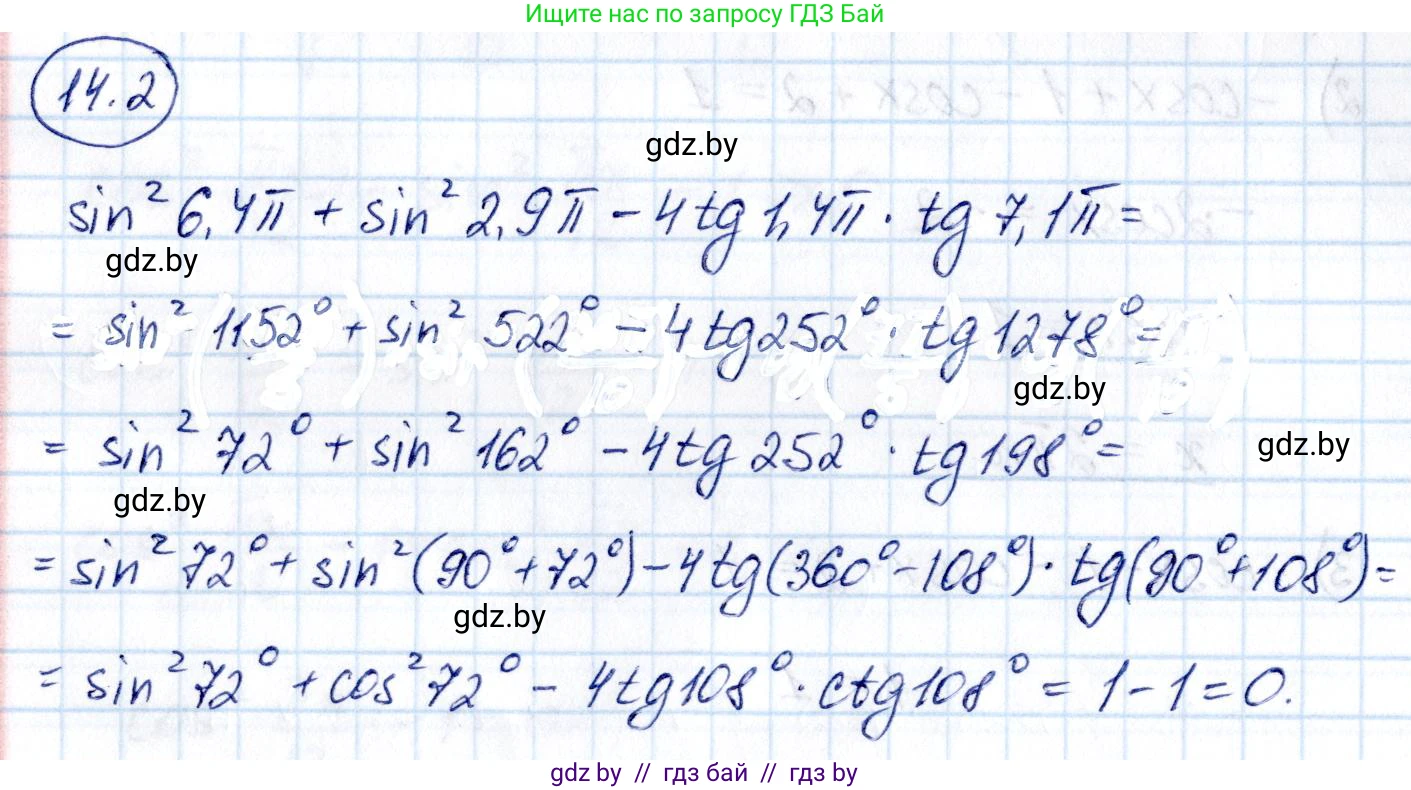 Ищите нас по запросу ГДЗ Бай
14.2
gdz.by
sin² 6,4π + sin² 2,9π − 4tg 1,4π · tg 7,1π =
gdz.by
= sin² 1152° + sin² 522° − 4tg252° · tg1278° =
gdz.by
= sin² 72° + sin² 162° − 4tg 252° · tg198° =
gdz.by
gdz.by
= sin² 72° + sin²(90°+72°) − 4tg(360°−108°) · tg(90°+108°) =
gdz.by
= sin² 72° + cos² 72° − 4tg108° · ctg108° = 1−1=0.
gdz by // гдз бай // гдз by